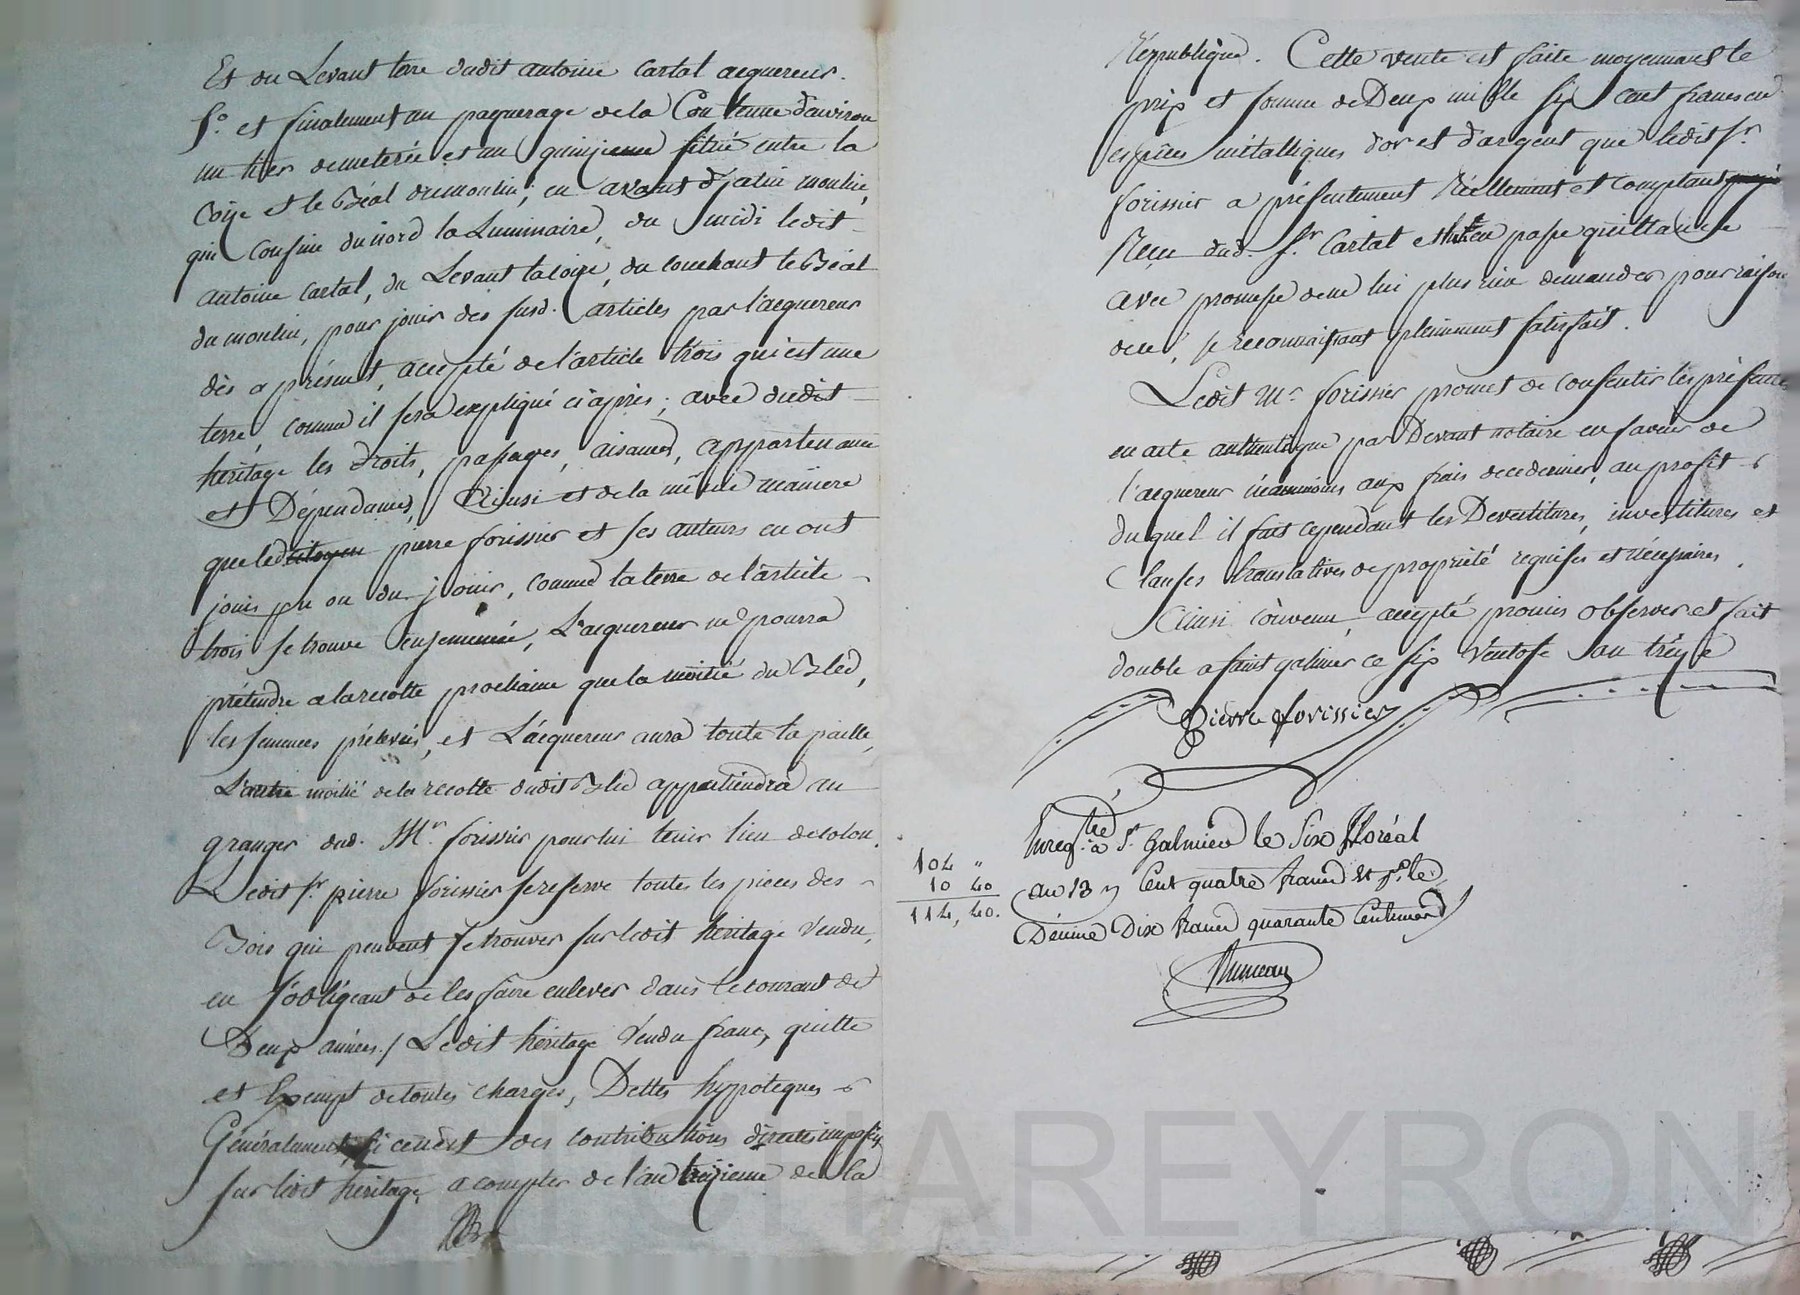 Et du Levant terre dudit antoine Cartal acquereur.
5o. et finalement un paquerage de la Contenue d'environ
un tier de meterée et un quinzieme situé entre la
Coize et le Béal du moulin, en avant dudit moulin,
qui confine du nord la Luminaire, du midi ledit
antoine Cartal, du Levant la loize, du couchant le Béal
du moulin, pour jouir des susd. articles par l'acquereur
dès a présent, accepté de l'article trois qui est une
terre, comme il sera expliqué ci après; avec dudit
héritage les droits, passages, aisances, appartenance
et Dépendances, Ainsi et de la même manière
que led citoyen pierre forissier et ses auteurs en ont
joui pu ou du jouir, comme la terre de l'article
trois se trouve ensemencée, L'acquereur ne pourra
prétendre a la recolte prochaine que la moitié du Bled,
les semences prélevées, et L'acquereur aura toute la paille,
L'autre moitié de la recolte dudit Bled appartiendra au
granger dud. Mr. forissier pour lui tenir lieu de colon.
Ledit sr. pierre forissier se reserve toutes les pieces des
Bois qui peuvent se trouver sur ledit héritage vendu,
en s'obligeant de les faire enlever dans le courant de
Deux années./ Ledit héritage vendu franc, quitte
et Exempt de toutes charges, Dettes hypoteques
Généralement, si ce n'est des contributions directes imposées
sur ledit héritage, a compter de l'an treizieme de la
République. Cette vente est faite moyennant le
prix et somme de Deux mille six cent francs en
espèces métalliques d'or et d'argent que ledit sr.
forissier a présentement réellement et comptant
Reçu dud. sr. Cartal et lui en passe quittance
avec promesse de ne lui plus rien demander pour raison
de ce, se reconnaissant pleinement satisfait.
Ledit Mr. forissier promet de consentir les présentes
en acte authentique par Devant notaire en faveur de
l'acquereur néanmoins aux frais de ce dernier, au profit
duquel il fait cependant les Devestitures, investitures et
Clauses translatives de propriété requises et nécessaires.
Ainsi convenu, accepté promis observer et fait
double a saint galmier ce six Ventose an treize
Pierre forissier
Enregtré a St. Galmier le Six floréal
an 13 Cent quatre francs et pr. le
Décime Dix francs quarante Centimes
104 "
10 40
114, 40.
CHAREYRON